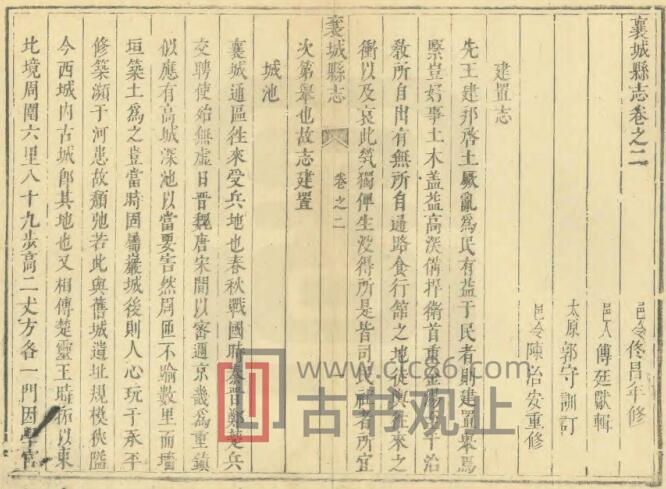 襄城縣志卷之二
邑令佟昌年修
邑人傅廷獻輯
太原郭守訓訂
邑令陳治安重修
建置志
先王建邦啓土厥亂爲民有益于民者則建置舉焉
緊豈好事土木蓋益高浚備捍衛首重金湯至于治
教所自出有無所自通路食行舘之地徒輿往來之
衝以及哀此煢獨俾生没得所是皆司民社者所宜
次第舉也故志建置
襄城縣志 卷之二
城池
襄城通區徃來受兵地也春秋戰國時秦晉鄭楚兵
交聘使始無虛日晉魏唐宋間以密邇京畿爲重鎮
似應有高城深池以當要害然周匝不踰數里而墻
垣築土爲之豈當時固嚴城後則人心玩于承平
修築瀕于河患故頽弛若此與舊城遺址規模狹隘
今西城內古城郎其地也又相傳楚靈王時拓以東
北境周圍六里八十九步高二丈方各一門因學宮
www.cc26.com
古书观止